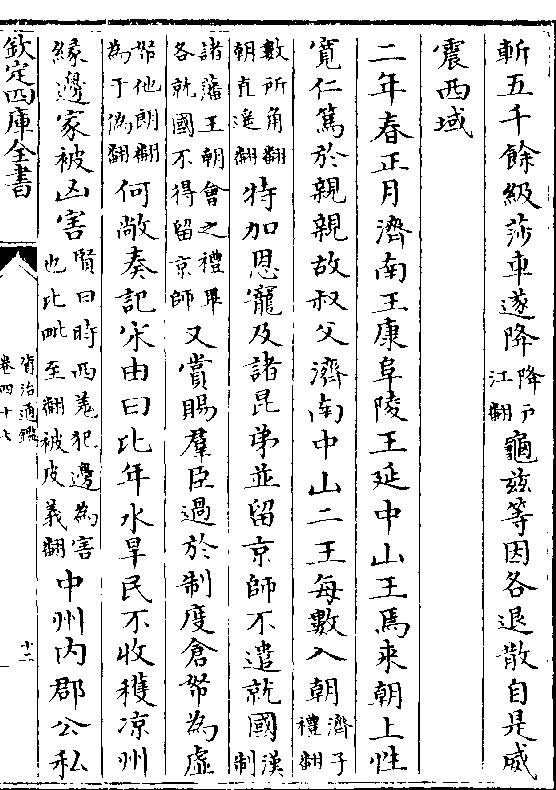 斬五千餘級莎車遂降降户江翻龜兹等因各退散自是威
震西域
二年春正月濟南王康阜陵王延中山王焉來朝上性
寛仁篤於親親故叔父濟南中山二王每數入朝濟子禮翻
數所角翻朝直遥翻特加恩寵及諸昆弟並留京師不遣就國漢制
諸藩王朝會之禮畢各就國不得留京師又賞賜羣臣過於制度倉帑為虚
帑他朗翻為于偽翻何敞奏記宋由曰比年水旱民不收穫凉州
緣邊家被凶害賢曰時西羗犯邊為害也比毗至翻被皮義翻中州内郡公私
欽定四庫全書
資治通鑑
卷四十七
十二